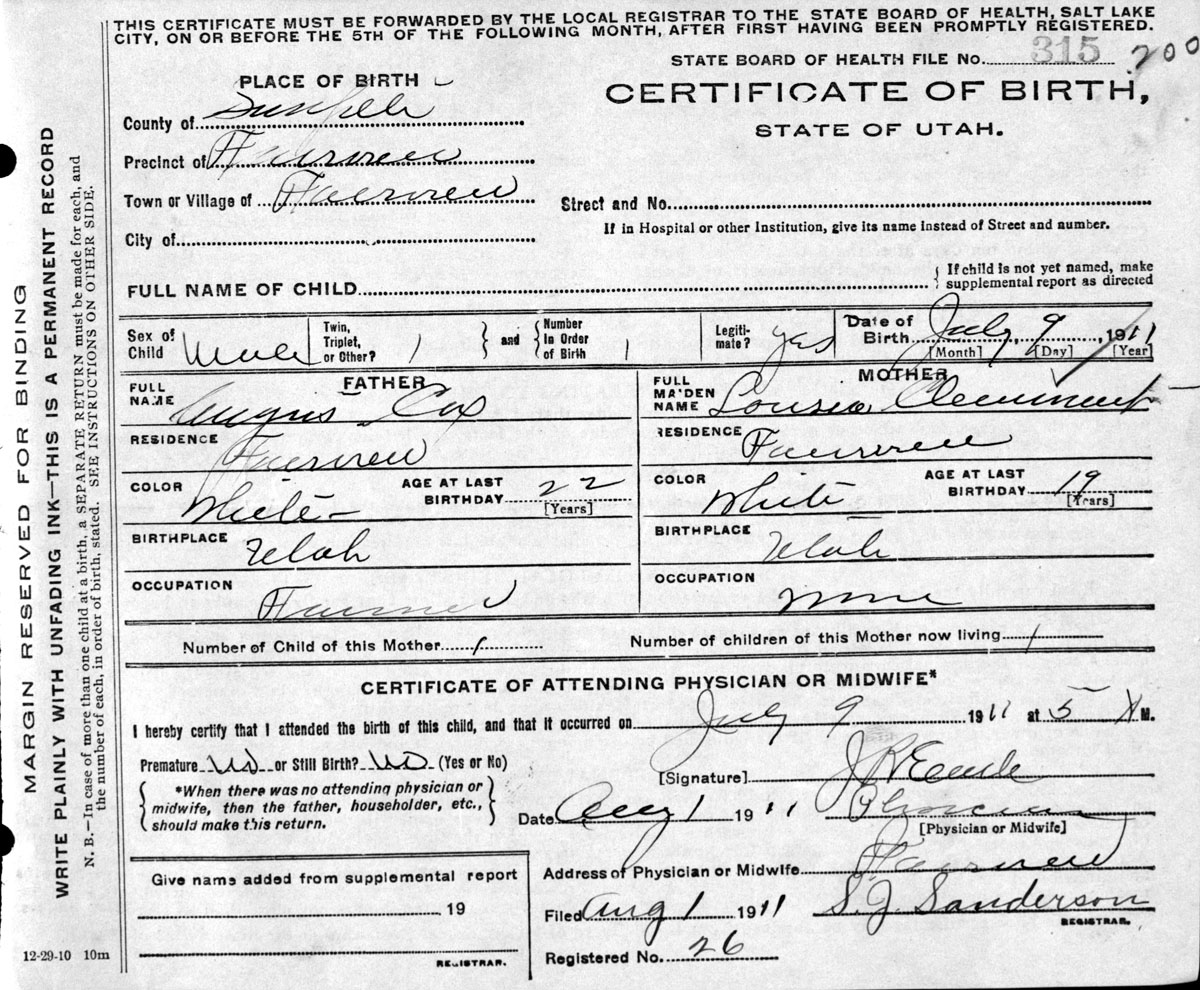 THIS CERTIFICATE MUST BE FORWARDED BY THE LOCAL REGISTRAR TO THE STATE BOARD OF HEALTH, SALT LAKE
CITY, ON OR BEFORE THE 5TH OF THE FOLLOWING MONTH, AFTER FIRST HAVING BEEN PROMPTLY REGISTERED.
STATE BOARD OF HEALTH FILE No. 315 200
PLACE OF BIRTH
CERTIFICATE OF BIRTH,
STATE OF UTAH.
County of Sanpete
Precinct of Fairview
Town or Village of Fairview
Street and No.
If in Hospital or other Institution, give its name instead of Street and number.
City of
FULL NAME OF CHILD
If child is not yet named, make
supplemental report as directed
Sex of Child Male
Twin, Triplet, or Other? 1
and
Number in Order of Birth 1
Legiti-mate? yes
Date of Birth July 9, 1911
[Month] [Day] [Year]
FATHER
FULL NAME Angus Cox
RESIDENCE Fairview
COLOR White
AGE AT LAST BIRTHDAY 22
[Years]
BIRTHPLACE Utah
OCCUPATION Farmer
MOTHER
FULL MAIDEN NAME Louisa Clement
RESIDENCE Fairview
COLOR White
AGE AT LAST BIRTHDAY 19
[Years]
BIRTHPLACE Utah
OCCUPATION None
Number of Child of this Mother 1
Number of children of this Mother now living 1
CERTIFICATE OF ATTENDING PHYSICIAN OR MIDWIFE*
I hereby certify that I attended the birth of this child, and that it occurred on July 9 1911 at 5 M.
Premature No or Still Birth? No (Yes or No)
*When there was no attending physician or
midwife, then the father, householder, etc.,
should make this return.
[Signature]
Date Aug 1 1911 Physician
[Physician or Midwife]
Address of Physician or Midwife Fairview
Filed Aug 1 1911 S.J. Sanderson
REGISTRAR.
Registered No. 26
Give name added from supplemental report
19
REGISTRAR.
12-29-10 10m
MARGIN RESERVED FOR BINDING
WRITE PLAINLY WITH UNFADING INK—THIS IS A PERMANENT RECORD
N. B.—In case of more than one child at a birth, a SEPARATE RETURN must be made for each, and
the number of each, in order of birth, stated. SEE INSTRUCTIONS ON OTHER SIDE.